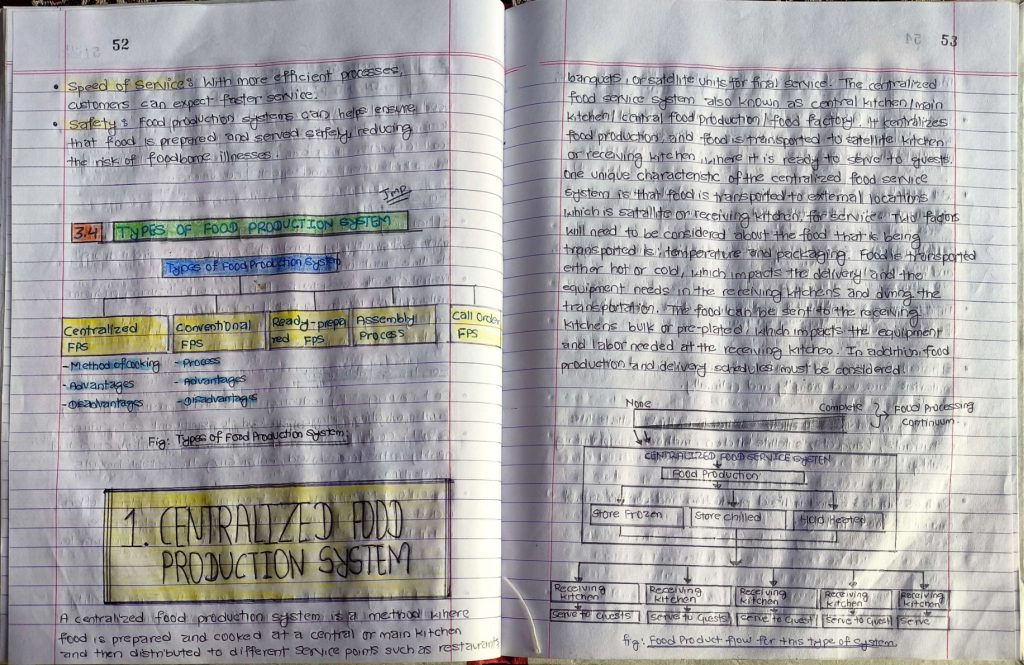 52
• Speed of Service: With more efficient processes,
customers can expect faster service.
• Safety: Food production systems can helps ensure
that food is prepared and served safely, reducing
the risk of foodborne illnesses.
Imp
3.4 TYPES OF FOOD PRODUCTION SYSTEM
Types of Food Production System
Centralized FPS
- Method of cooking
- Advantages
- Disadvantages
Conventional FPS
- Process
- Advantages
- Disadvantages
Ready-prepared FPS
Assembly Process
Call Order FPS
Fig: Types of Food Production System.
1. CENTRALIZED FOOD
PRODUCTION SYSTEM
A centralized food production system is a method where
food is prepared and cooked at a central or main kitchen
and then distributed to different service points such as restaurants,
53
banquets, or satellite units for final service. The centralized
food service system also known as central kitchen/main
kitchen/central food production/food factory. It centralizes
food production, and food is transported to satellite kitchen
or receiving kitchen, where it is ready to serve to guests.
One unique characteristic of the centralized food service
system is that food is transported to external locations
which is satallite or receiving kitchen, for service. Two factors
will need to be considered about the food that is being
transported is: temperature and packaging. Food is transported
either hot or cold, which impacts the delivery and the
equipment needs in the receiving kitchens and during the
transportation. The food can be sent to the receiving
kitchens bulk or pre-plated, which impacts the equipment
and labor needed at the receiving kitchen. In addition, food
production and delivery schedules must be considered.
None Complete
Food Processing
continuum.
CENTRALIZED FOOD SERVICE SYSTEM
Food Production
Store Frozen Store Chilled Hold Heated
Receiving kitchen Receiving kitchen Receiving kitchen Receiving kitchen Receiving kitchen
Serve to Guests Serve to Guest Serve to Guest Serve to Guest Serve
fig: Food Product flow for this type of system.